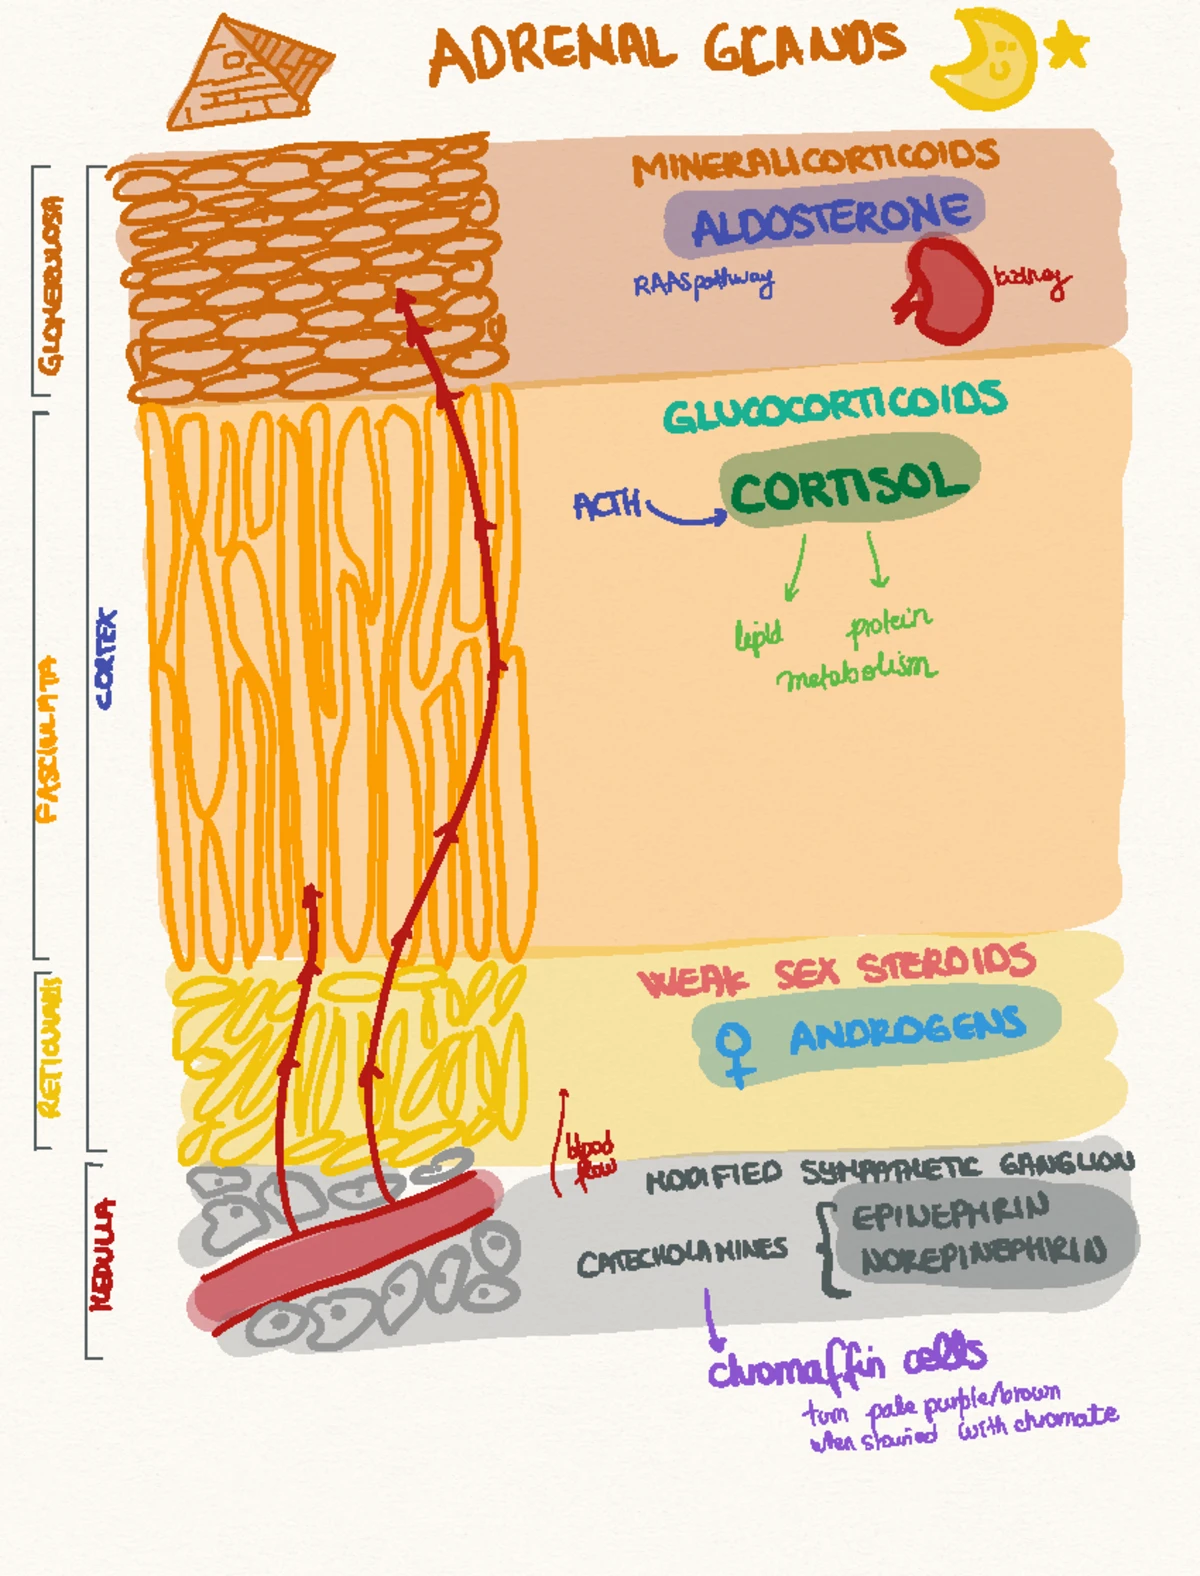 ADRENAL GLANDS
GLOMERULOSA
FASCIULATA
RETICULARIS
CORTEX
MEDULLA
MINERALICORTICOIDS
ALDOSTERONE
RAAS pathway
kidney
GLUCOCORTICOIDS
ACTH
CORTISOL
lipid protein
metabolism
WEAK SEX STEROIDS
♀ ANDROGENS
blood
flow
MODIFIED SYMPATHETIC GANGLION
CATECHOLAMINES
EPINEPHRIN
NOREPINEPHRIN
chromaffin cells
turn pale purple/brown
when stained with chromate